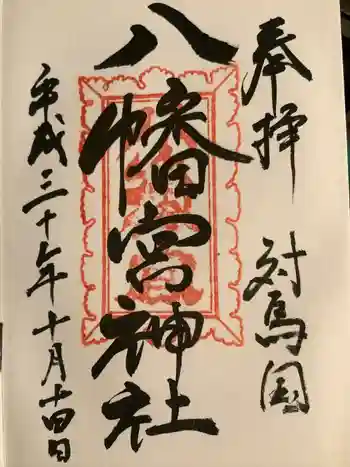 奉拝 対馬国
八幡宮神社
平成三十年十月十四日